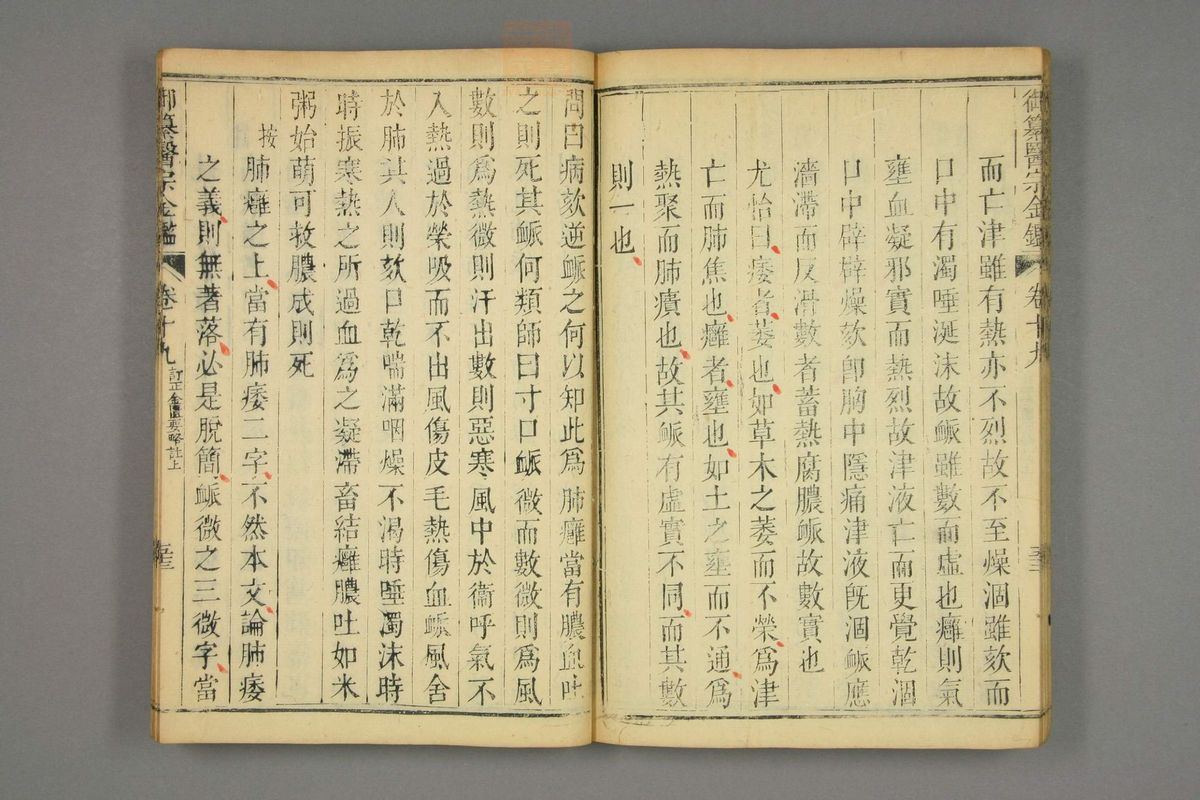 御纂醫宗金鑑 卷十九
而亡津雖有熱亦不烈故不至燥涸雖欬而
口中有濁唾涎沫故脈雖數而虛也癰則氣
壅血凝邪實而熱烈故津液亡而更覺乾涸
口中辟辟燥欬卽胸中隱痛津液旣涸脈應
濇滯而反滑數者蓄熱腐膿脈故數實也
尤怡曰痿者萎也如草木之萎而不榮爲津
亡而肺焦也癰者壅也如土之壅而不通爲
熱聚而肺㿉也故其脈有虛實不同而其數
則一也
問曰病欬逆脈之何以知此爲肺癰當有膿血吐
之則死其脈何類師曰寸口脈微而數微則爲風
數則爲熱微則汗出數則惡寒風中於衞呼氣不
入熱過於榮吸而不出風傷皮毛熱傷血脈風舍
於肺其人則欬口乾喘滿咽燥不渴時唾濁沫時
時振寒熱之所過血爲之凝滯畜結癰膿吐如米
粥始萌可救膿成則死
按肺癰之上當有肺痿二字不然本文論肺痿
之義則無著落必是脫簡脈微之三微字當
御纂醫宗金鑑 卷十九 訂正金匱要略註上